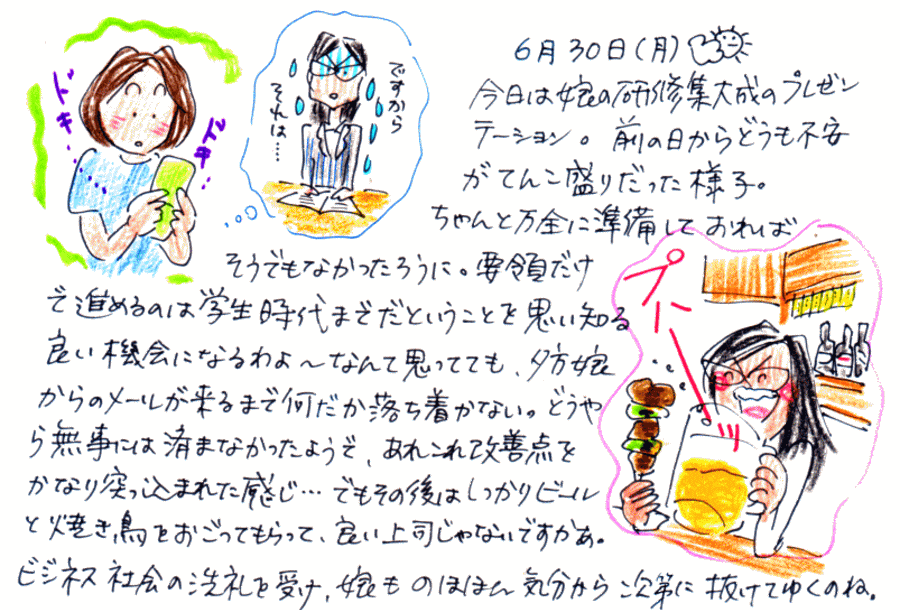 6月30日(月)
今日は娘の研修集大成のプレゼン
テーション。前の日からどうも不安
がてんこ盛りだった様子。
ちゃんと万全に準備しておれば
そうでもなかったろうに。要領だけ
で進めるのは学生時代までだということを思い知る
良い機会になるわよ〜なんて思ってても、夕方娘
からのメールが来るまで何だか落ち着かない。どうや
ら無事には済まなかったようで、あれこれ改善点を
かなり突っ込まれた感じ…でもその後はしっかりビール
と焼き鳥をおごってもらって、良い上司じゃないですかぁ。
ビジネス社会の洗礼を受け、娘ものほほん気分から次第に抜けてゆくのね。
ドキ
ドキ
ですから
それは…
プハー